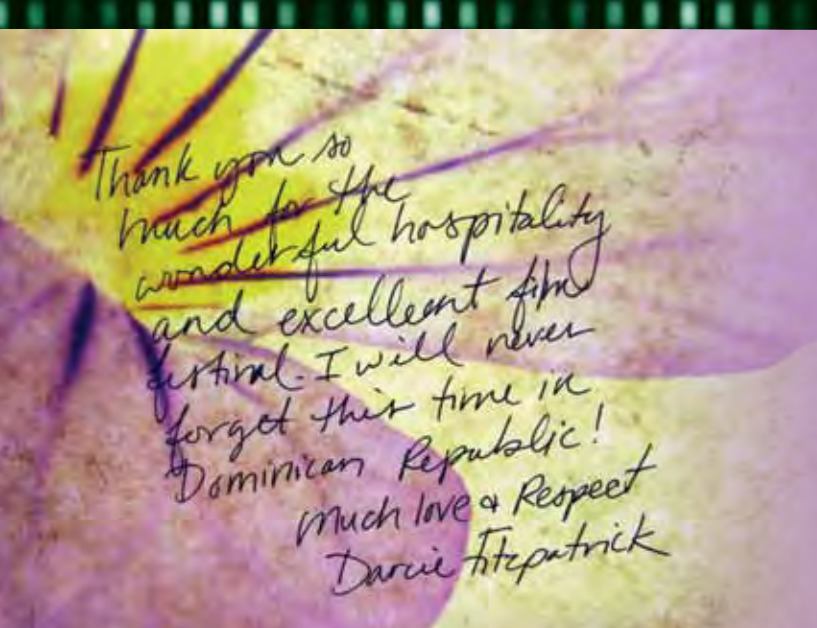 Thank you so
much for the
wonderful hospitality
and excelleent film
festival. I will never
forget this time in
Dominican Republic!
Much love & Respect
Darcie Fitzpatrick